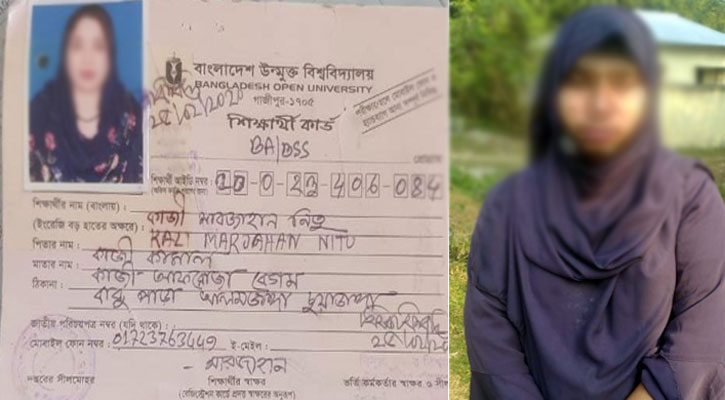 বাংলাদেশ উন্মুক্ত বিশ্ববিদ্যালয়
BANGLADESH OPEN UNIVERSITY
গাজীপুর-১৭০৫
শিক্ষার্থী কার্ড
BA/BSS
শিক্ষার্থী আইডি নম্বর : 0-23-406-084
শিক্ষার্থীর নাম (বাংলায়) : কাজী মারজাহান নিতু
(ইংরেজি বড় হাতের অক্ষরে) : KAZI MARJAHAN NITU
পিতার নাম : কাজী কামাল
মাতার নাম : কাজী আফরোজা বেগম
ঠিকানা : পাড়া আলমডাঙ্গা চুয়াডাঙ্গা
জাতীয় পরিচয়পত্র নম্বর (যদি থাকে) :
মোবাইল ফোন নম্বর : 01723763449 ই-মেইল :
মারজাহান
দপ্তরের সীলমোহর শিক্ষার্থীর স্বাক্ষর ভর্তি কর্মকর্তার স্বাক্ষর ও